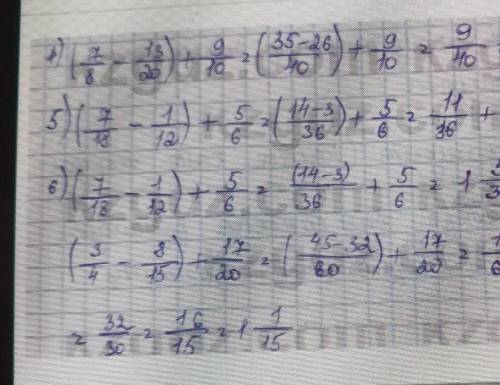 4) (7/8 - 13/20) + 9/10 = (35-26/40) + 9/10 = 9/40
5) (7/18 - 1/12) + 5/6 = (14-3/36) + 5/6 = 11/36 +
6) (7/18 - 1/12) + 5/6 = (14-3)/36 + 5/6 = 1
(3/4 - 8/15) + 17/20 = (45-32/60) + 17/20 =
= 32/30 = 16/15 = 1 1/15